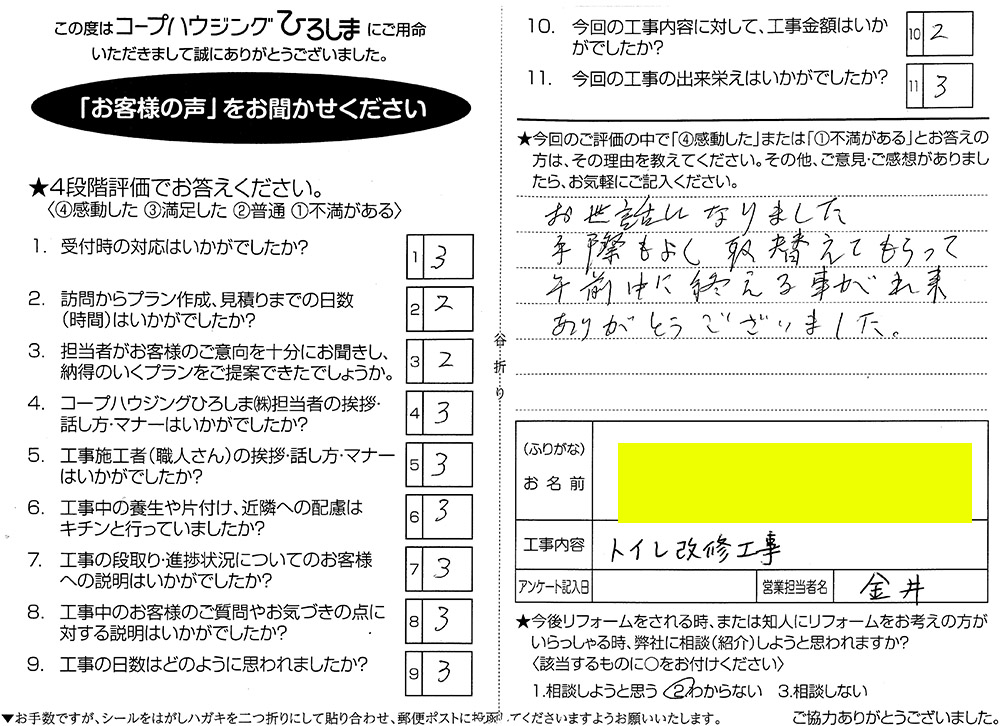 この度はコープハウジングひろしまにご用命
いただきまして誠にありがとうございました。
「お客様の声」をお聞かせください
★4段階評価でお答えください。
〈④感動した ③満足した ②普通 ①不満がある〉
1. 受付時の対応はいかがでしたか? 1 3
2. 訪問からプラン作成、見積りまでの日数
（時間）はいかがでしたか? 2 2
3. 担当者がお客様のご意向を十分にお聞きし、
納得のいくプランをご提案できたでしょうか。 3 2
4. コープハウジングひろしま㈱担当者の挨拶・
話し方・マナーはいかがでしたか? 4 3
5. 工事施工者（職人さん）の挨拶・話し方・マナー
はいかがでしたか? 5 3
6. 工事中の養生や片付け、近隣への配慮は
キチンと行っていましたか? 6 3
7. 工事の段取り・進捗状況についてのお客様
への説明はいかがでしたか? 7 3
8. 工事中のお客様のご質問やお気づきの点に
対する説明はいかがでしたか? 8 3
9. 工事の日数はどのように思われましたか? 9 3
谷折り
10. 今回の工事内容に対して、工事金額はいか
がでしたか? 10 2
11. 今回の工事の出来栄えはいかがでしたか? 11 3
★今回のご評価の中で「④感動した」または「①不満がある」とお答えの
方は、その理由を教えてください。その他、ご意見・ご感想がありまし
たら、お気軽にご記入ください。
お世話になりました
手際もよく取替えてもらって
午前中に終える事がれ来
ありがとうございました。
（ふりがな）
お名前
工事内容 トイレ改修工事
アンケート記入日 営業担当者名 金井
★今後リフォームをされる時、または知人にリフォームをお考えの方が
いらっしゃる時、弊社に相談（紹介）しようと思われますか?
〈該当するものに○をお付けください〉
1.相談しようと思う ②わからない 3.相談しない
▼お手数ですが、シールをはがしハガキを二つ折りにして貼り合わせ、郵便ポストに投函してくださいますようお願いいたします。
ご協力ありがとうございました。